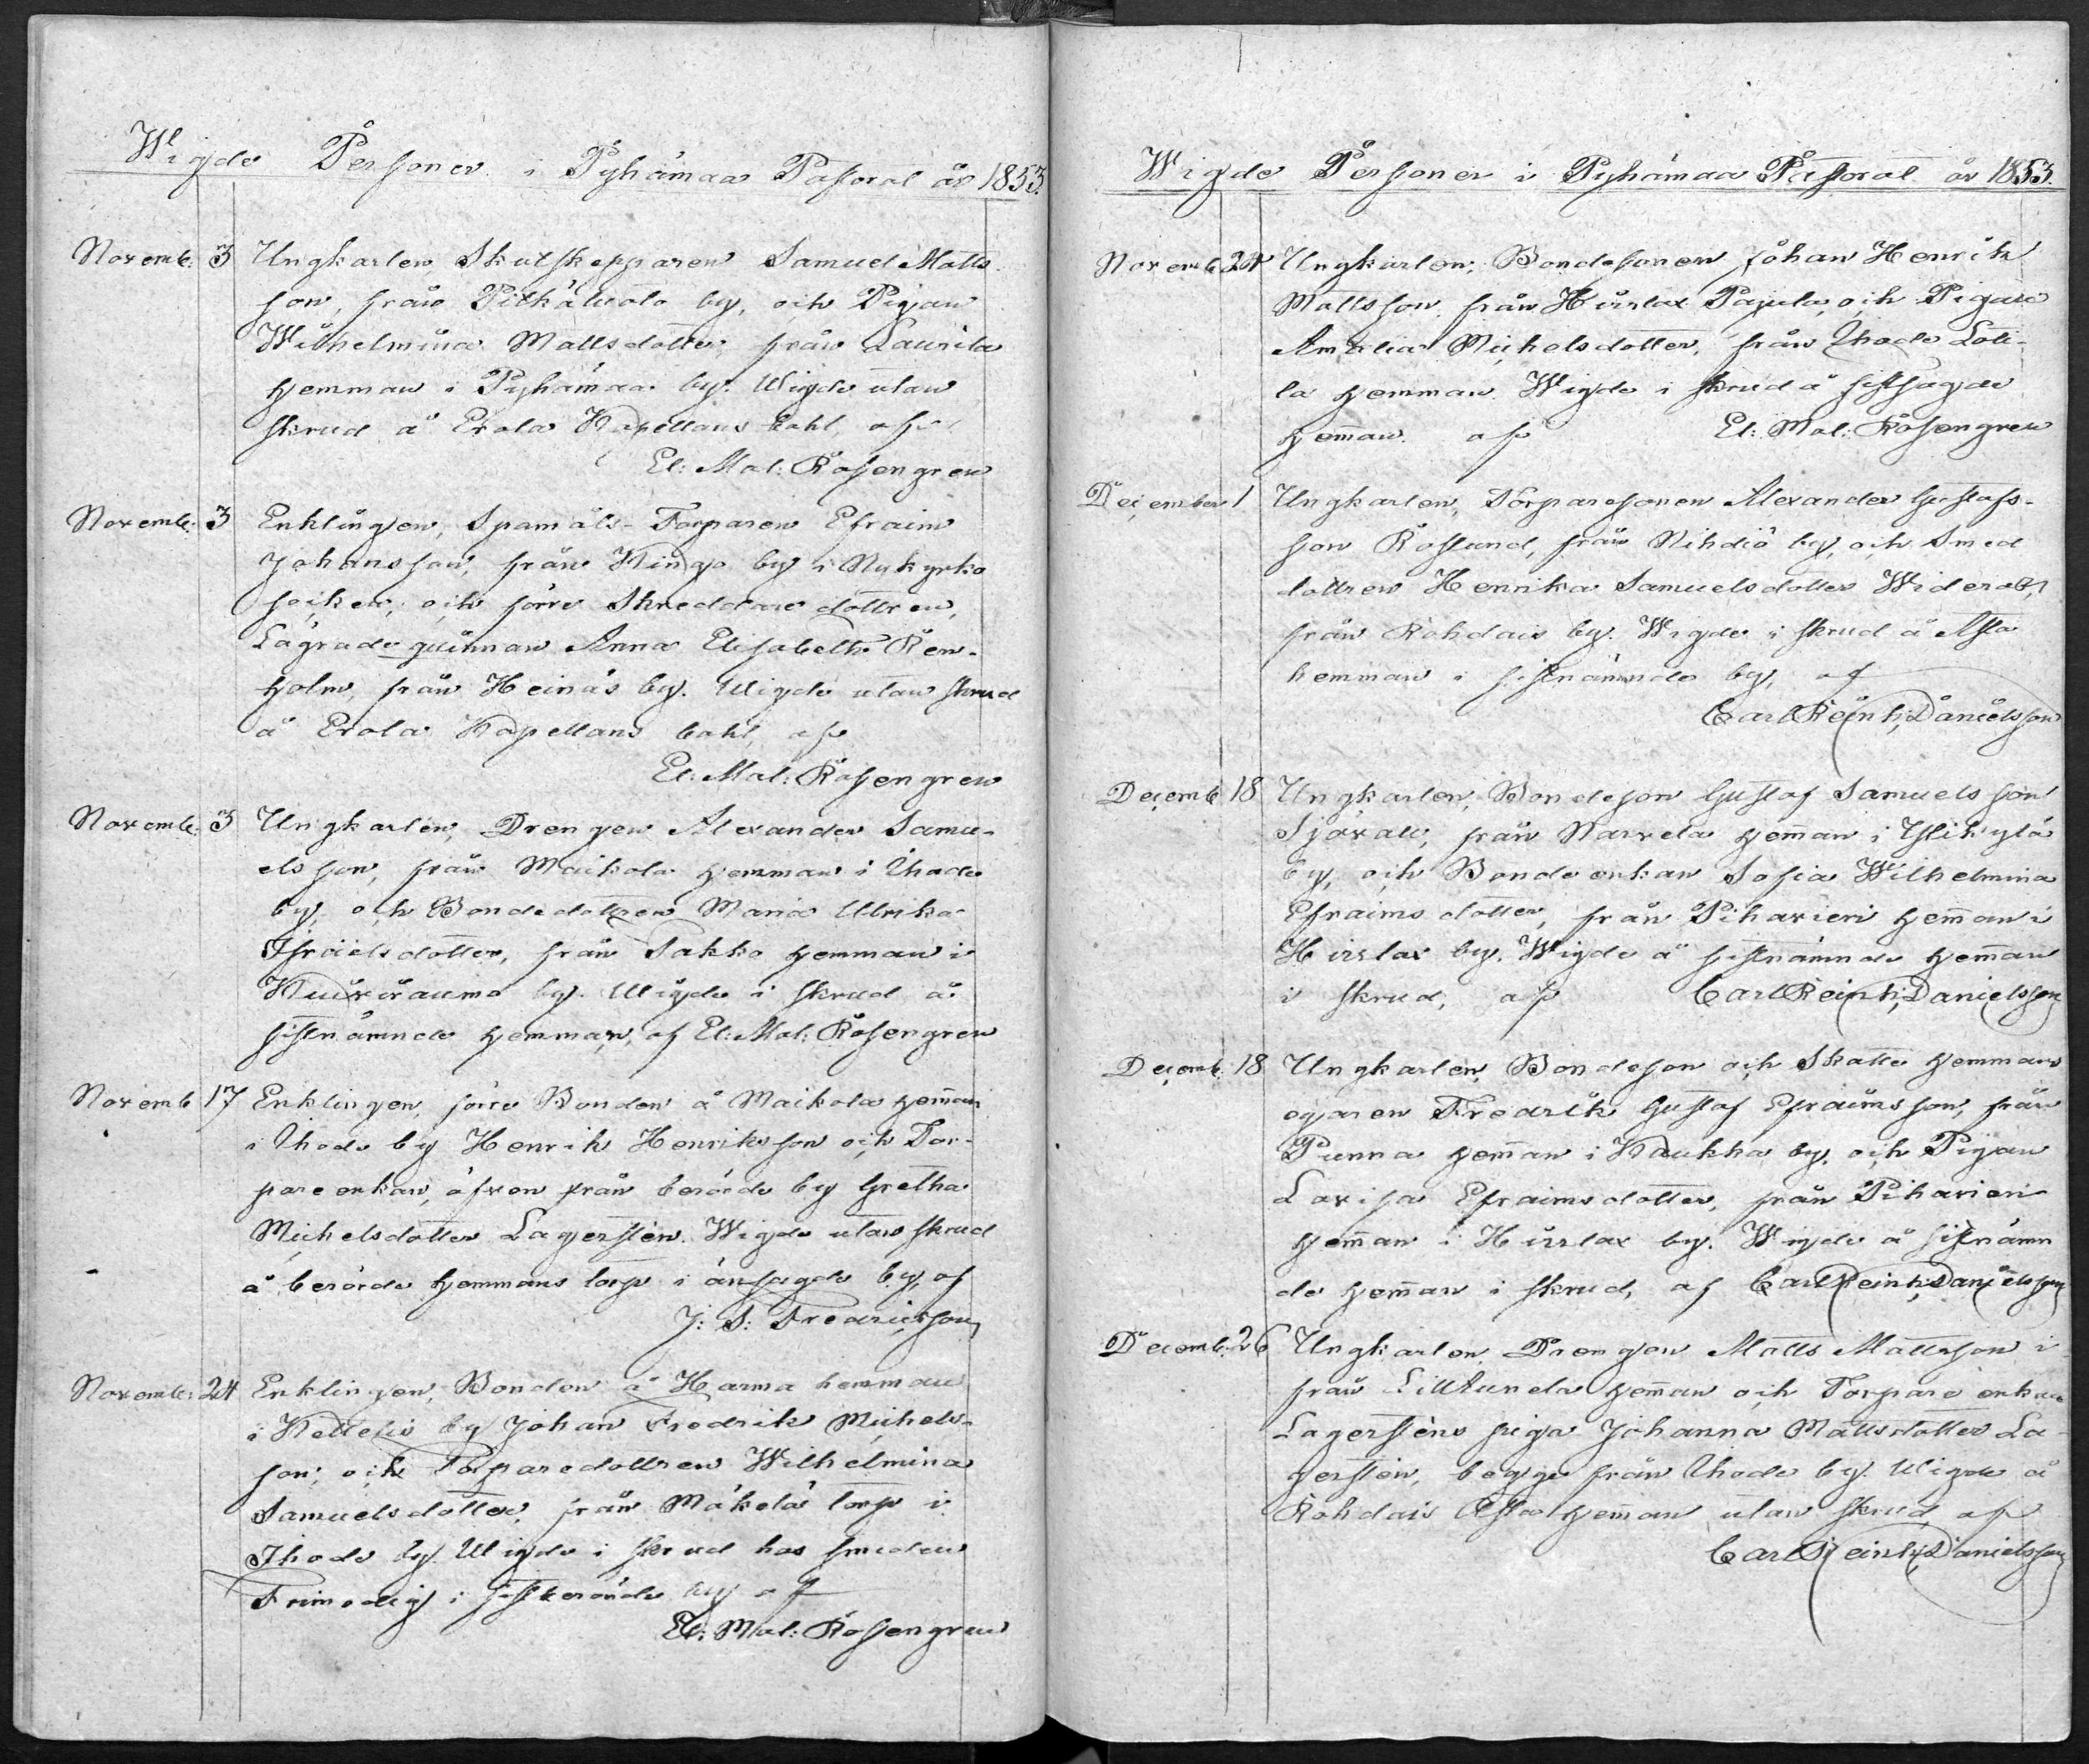 Wigde Personer i Pyhämaa Pastoral år 1853.
Novemb. 3 Ungkarlen Skutskepparen Samuel Matts
son, från Pitkäluoto by, och Pigan
Wilhelmina Mattsdotter, från Laurila
hemman i Pyhämaa by. Wigde utan
skrud å Erola Kapellans bohl, af
El: Mal: Rosengren
Novemb. 3 Enklingen, Spamåls-Torparen Efraim
Johansson, från by i Nykyrko
socken; och förre Skreddare dottren,
Lägrade qvinnan Anna Elisabeth Ren-
holm, från Heinäs by. Wigde utan skrud
å Erola Kapellans bohl, af
El: Mal: Rosengren
Novemb. 3 Ungkarlen, Drengen Alexander Samu-
elsson, från Maikola hemman i Ihode
by, och Bondedottren Maria Ulrika
Israelsdotter, från Sakko hemman i
Kuivrauma by. Wigde i skrud å
sistnämnde hemman, af El: Mal: Rosengren
Novemb 17 Enklingen, förre Bonden å Maikola hem̄an
i Ihode by Henrik Henriksson och Tor-
pareenkan, äfven från berörde by Gretha
Michelsdotter Lagerstén. Wigde utan skrud
å berörde hemmans torp i ansagde by, af
J: S: Fredricsson
Novemb. 24 Enklingen, Bonden å Harma hemman
i Kettelis by Johan Fredrik Michels-
son, och Torparedottren Wilhelmina
Samuelsdotter, från Mäkelä torp i
Ihode by. Wigde i skrud hos smeden
Frimodig i sistberörde by af
El: Mal: Rosengren
Wigde Personer i Pyhämaa Pastoral år 1853.
Novemb 24 Ungkarlen, Bondesonen Johan Henrik
Mattsson, från Hirslax Pajula, och Pigan
Amalia Michelsdotter, från Ihode Loti-
la hemman. Wigde i skrud å sistsagde
hem̄an. af El: Mal: Rosengren
December 1 Ungkarlen, Torparesonen Alexander Gustafs-
son Roslund, från Nihdiö by, och Smed
dottren Henrika Samuelsdotter
från Rohdais by. Wigde i skrud å Asta
hemman i sistnämnde by, af
Carl Reinh: Danielsson
Decemb 18 Ungkarlen, Bondeson Gustaf Samuelsson
Sjövall, från Narvela hem̄an i Ylikylä
by, och Bondeenkan Sofia Wilhelmina
Efraimsdotter, från Pihavieri hem̄an i
Hirslax by. Wigde å sistnämnde hem̄an
i skrud, af Carl Reinh: Danielsson
Decemb. 18 Ungkarlen, Bondeson och Skatte hemmans
egaren Fredrik Gustaf Efraimsson, från
Punna hem̄an i Kaukka by, och Pigan
Lovisa Efraimsdotter, från Pihavieri
hem̄an i Hirslax by. Wigde å sistnämn
de hem̄an i skrud, af Carl Reinh: Danielsson
Decemb. 26 Ungkarlen, Drengen Matts Mattsson i
från Lilltunela hem̄an och Torpare enkan
Lagersténs piga Johanna Mattsdotter La-
gerstén, begge från Ihode by. Wigde å
Rohdais Asta hem̄an utan skrud af
Carl Reinh: Danielsson